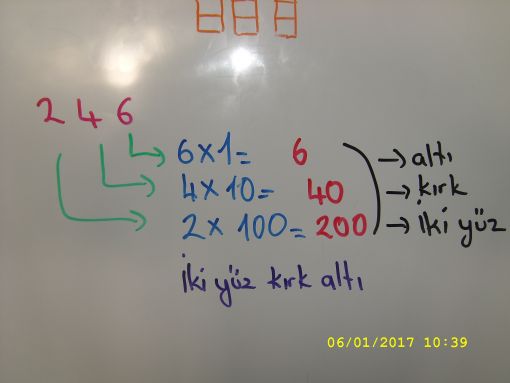 246
6x1= 6 → altı
4x10= 40 → kırk
2x100= 200 → İki yüz
İki yüz kırk altı
06/01/2017 10:39